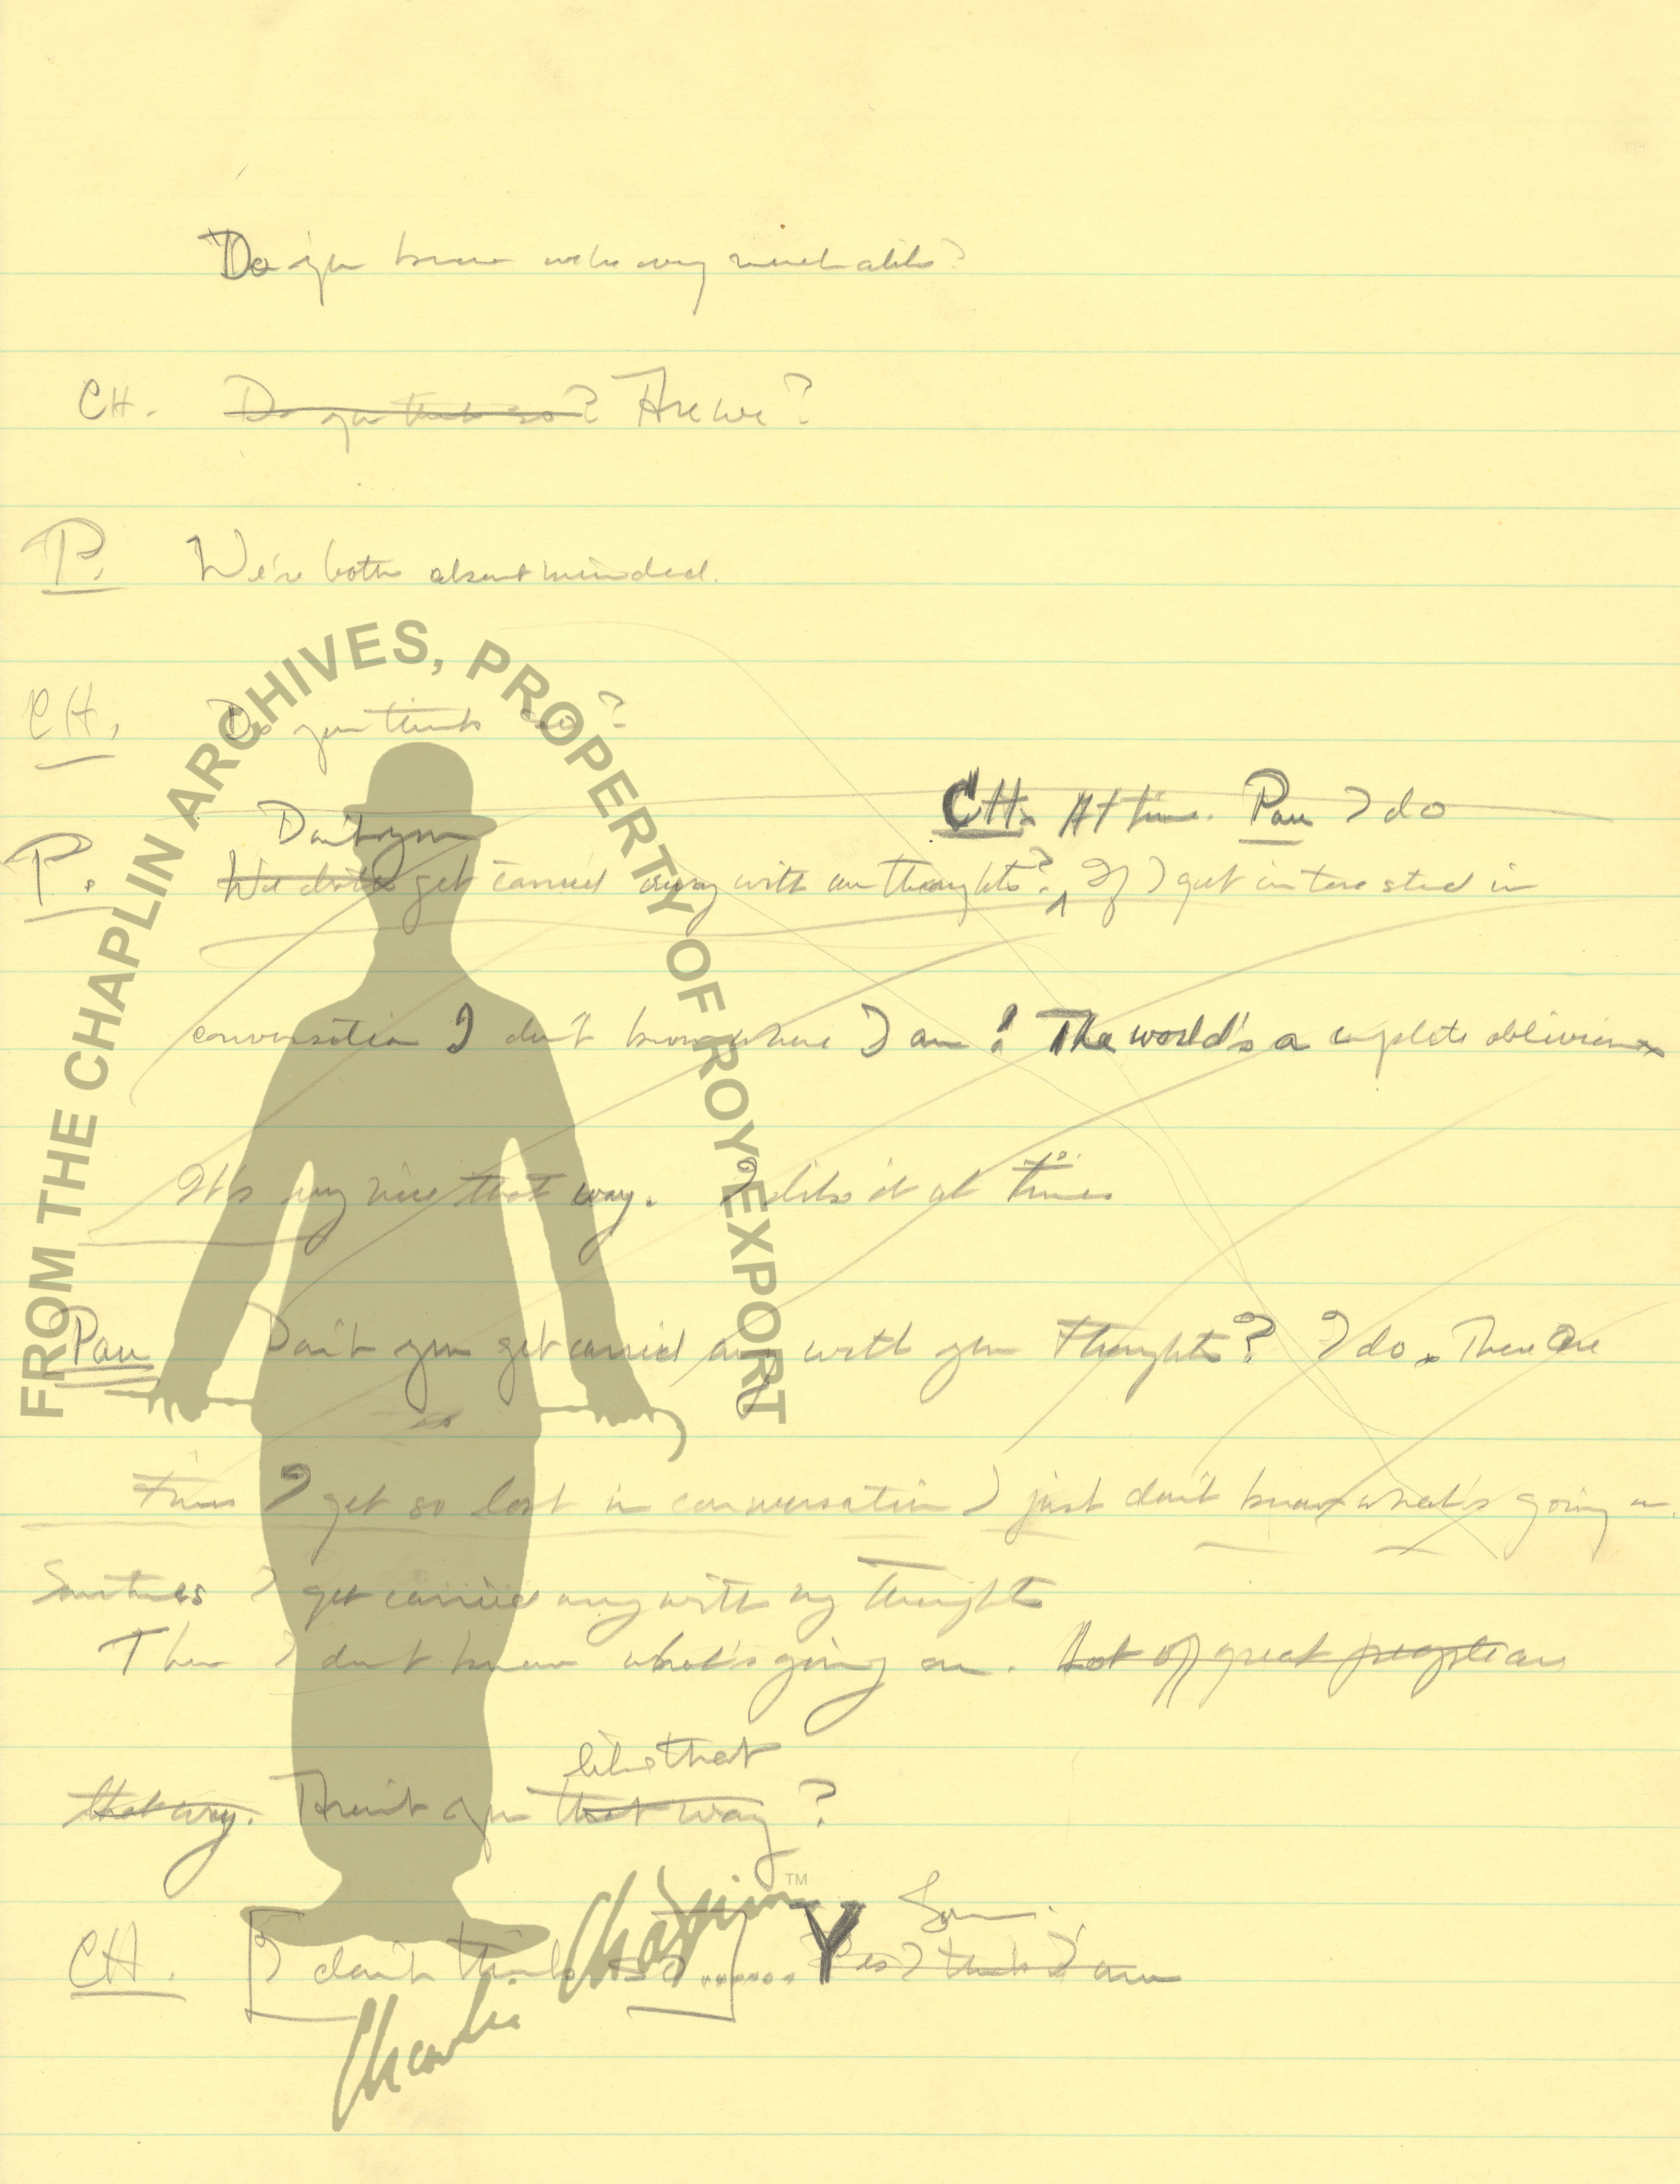 Do you know we're very much alike?
CH. Do you think so? Are we?
P. We're both absent minded.
CH. Do you think so?
Don't you CH. At times. Pau I do
P. We do get carried away with our thoughts? If I get interested in
conversation I don't know where I am! The world's a complete oblivion
It's very nice that way. I like it at times
Pau Don't you get carried away with your thoughts? I do. There are
times I get so lost in conversation I just don't know what's going on.
Sometimes I get carried away with my thoughts
Then I don't know what's going on. Lot of great people are
like that
that way. Aren't you that way?
CH. I don't think so....... Yes I think I am
FROM THE CHAPLIN ARCHIVES, PROPERTY OF ROY EXPORT
Charlie Chaplin™